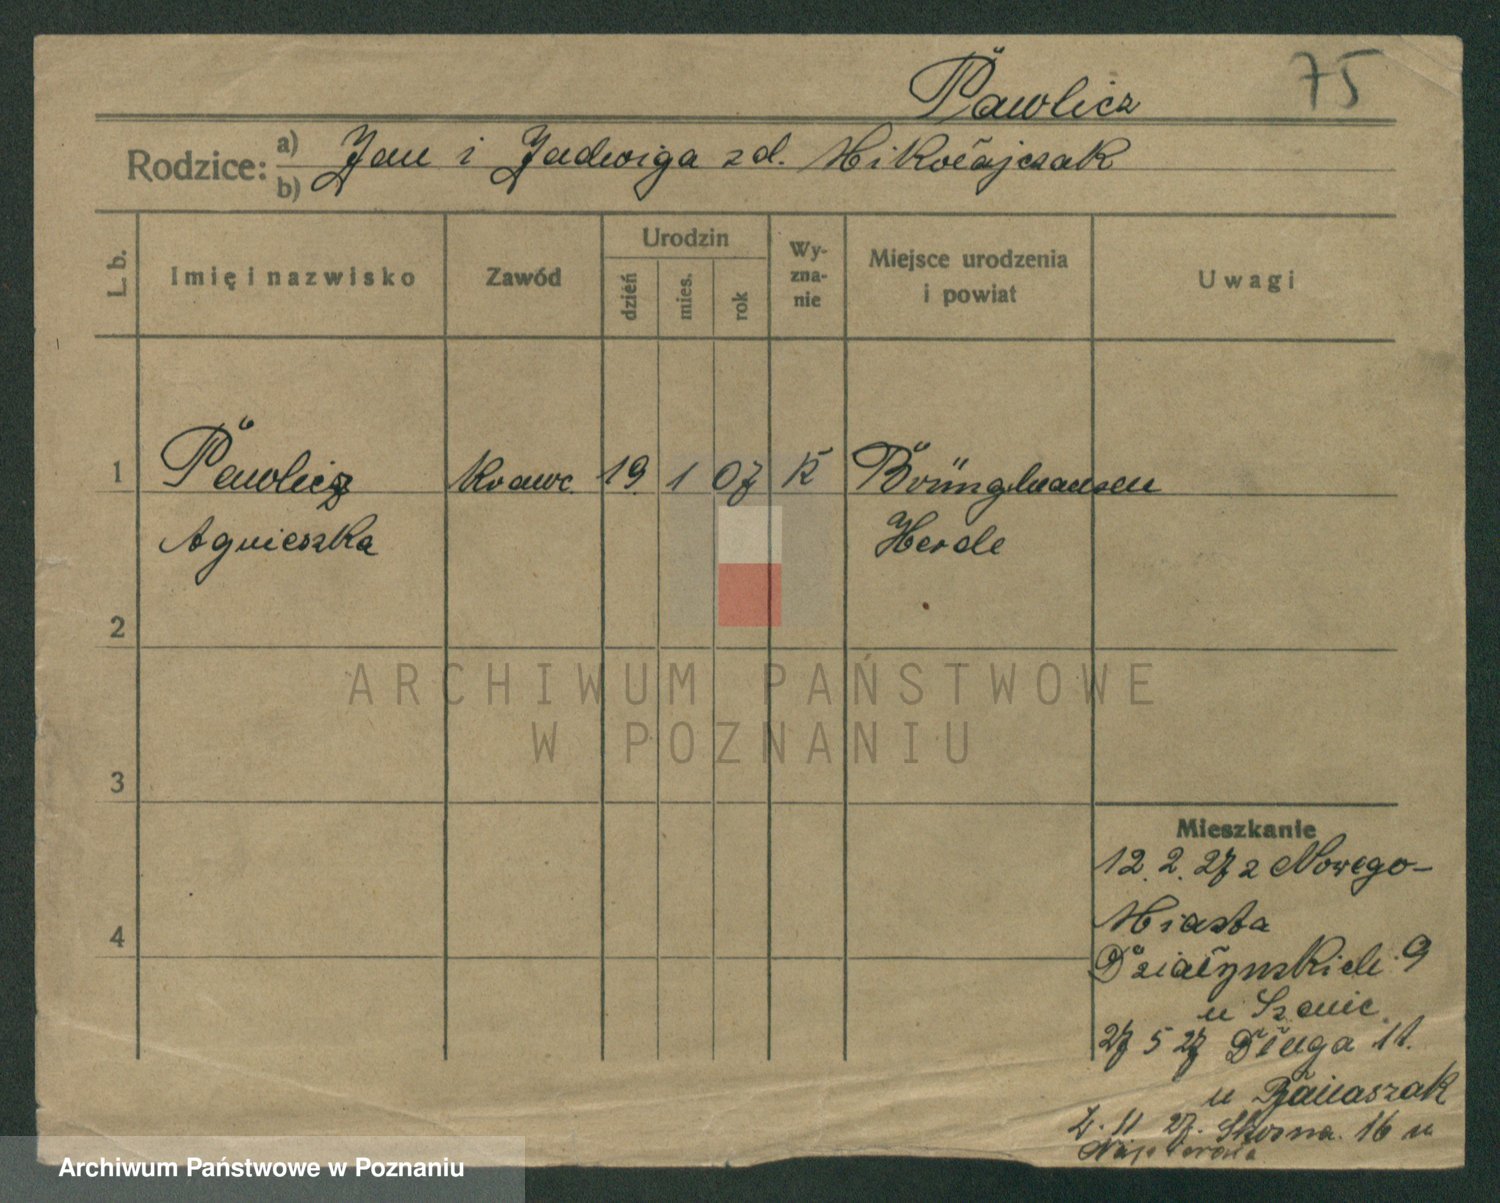 Pawlicz 75
Rodzice: a) b) Jan i Jadwiga zd. Mikołajczak
L. b. Imię i nazwisko Zawód Urodzin Wyznanie Miejsce urodzenia i powiat Uwagi
dzień mies. rok
1 Pawlicz krawc. 19. 1 07 K Brünghausen
Agnieszka Herde
2
ARCHIWUM PAŃSTWOWE
W POZNANIU
3
Mieszkanie
12. 2. 27 z Nowego-
4 Miasta
Działyńskich 9
u
27 5 27 Długa 11.
u Banaszak
11 27. 16 u
Archiwum Państwowe w Poznaniu